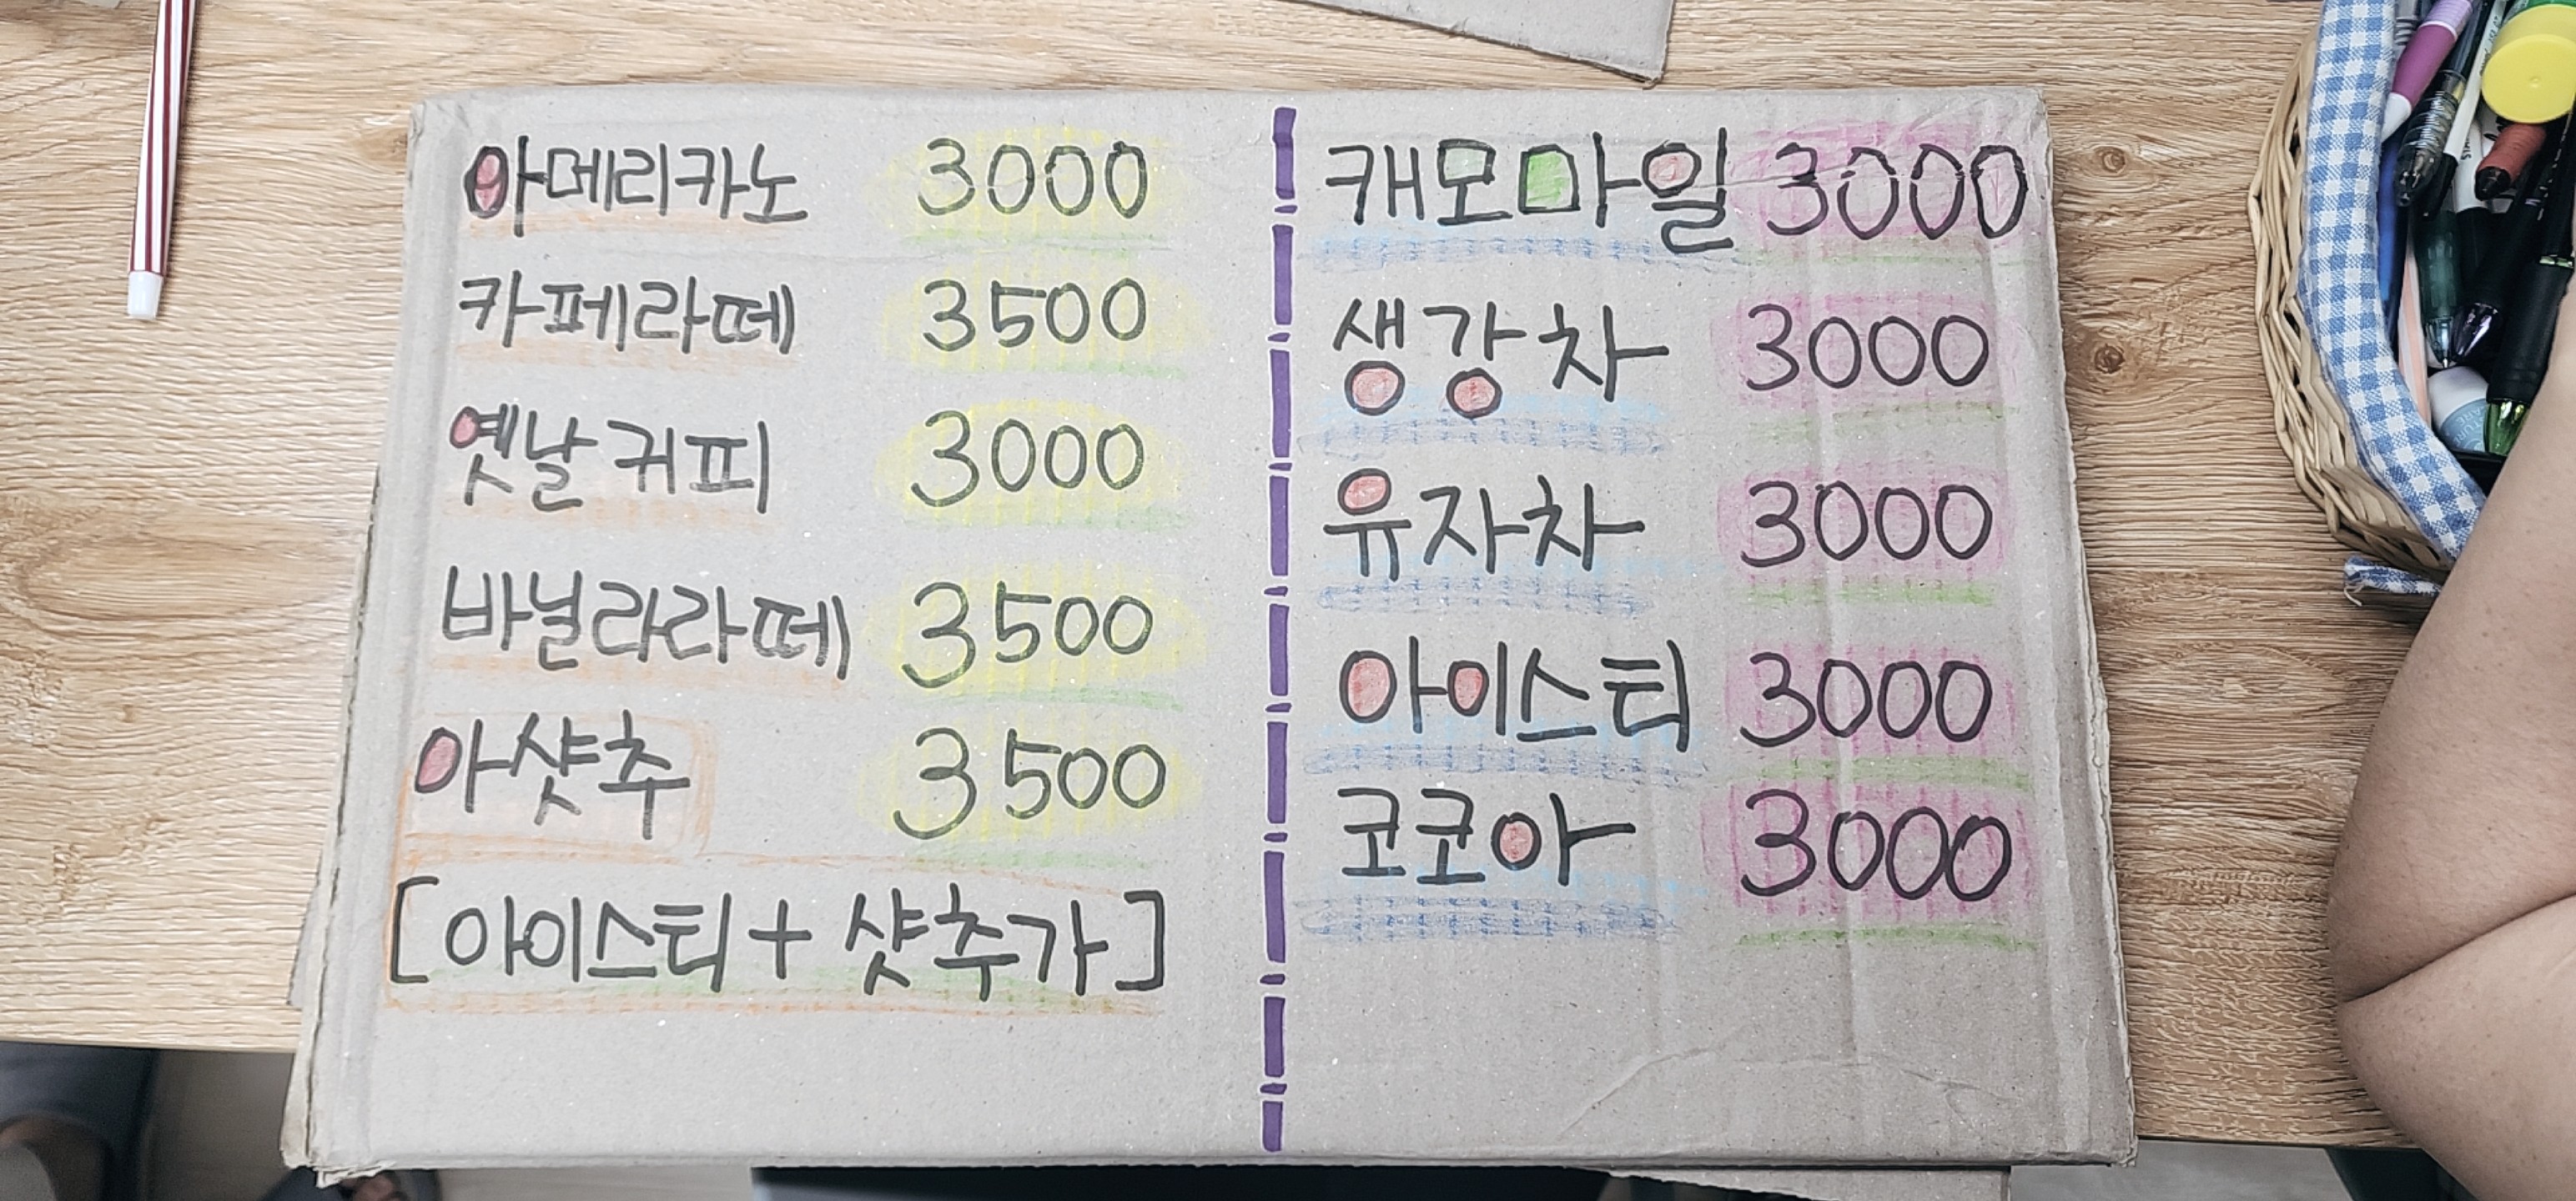 아메리카노 3000
카페라떼 3500
옛날커피 3000
바닐라라떼 3500
아샷추 3500
[아이스티+샷추가]
캐모마일 3000
생강차 3000
유자차 3000
아이스티 3000
코코아 3000